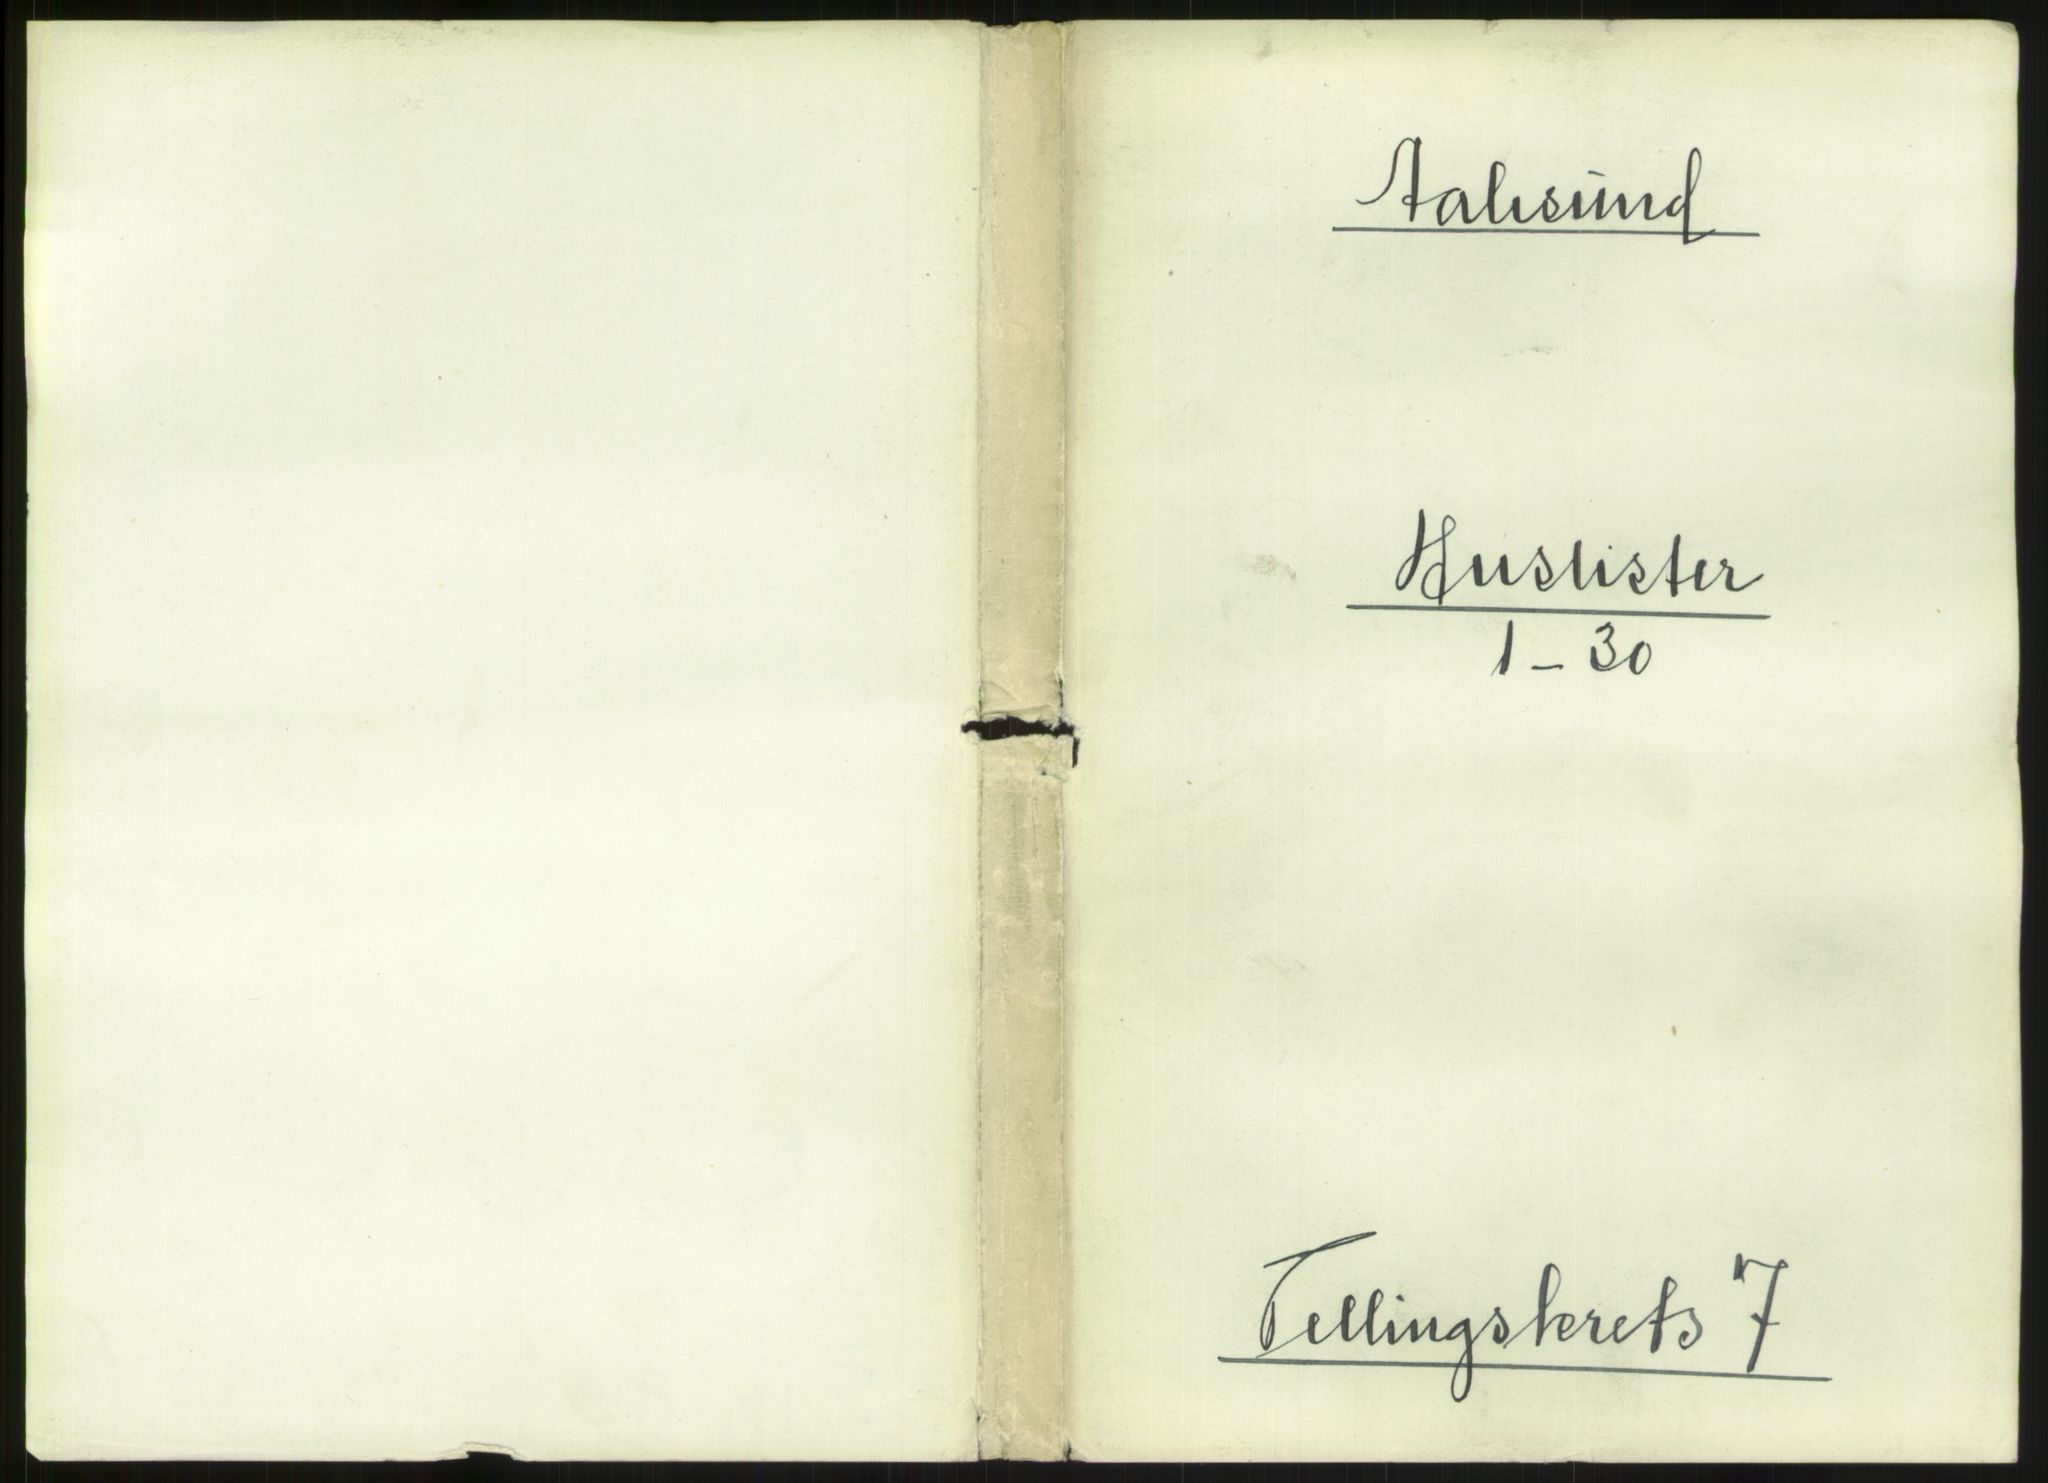 Aalesund
Huslister
1 - 30
Tellingskrets 7